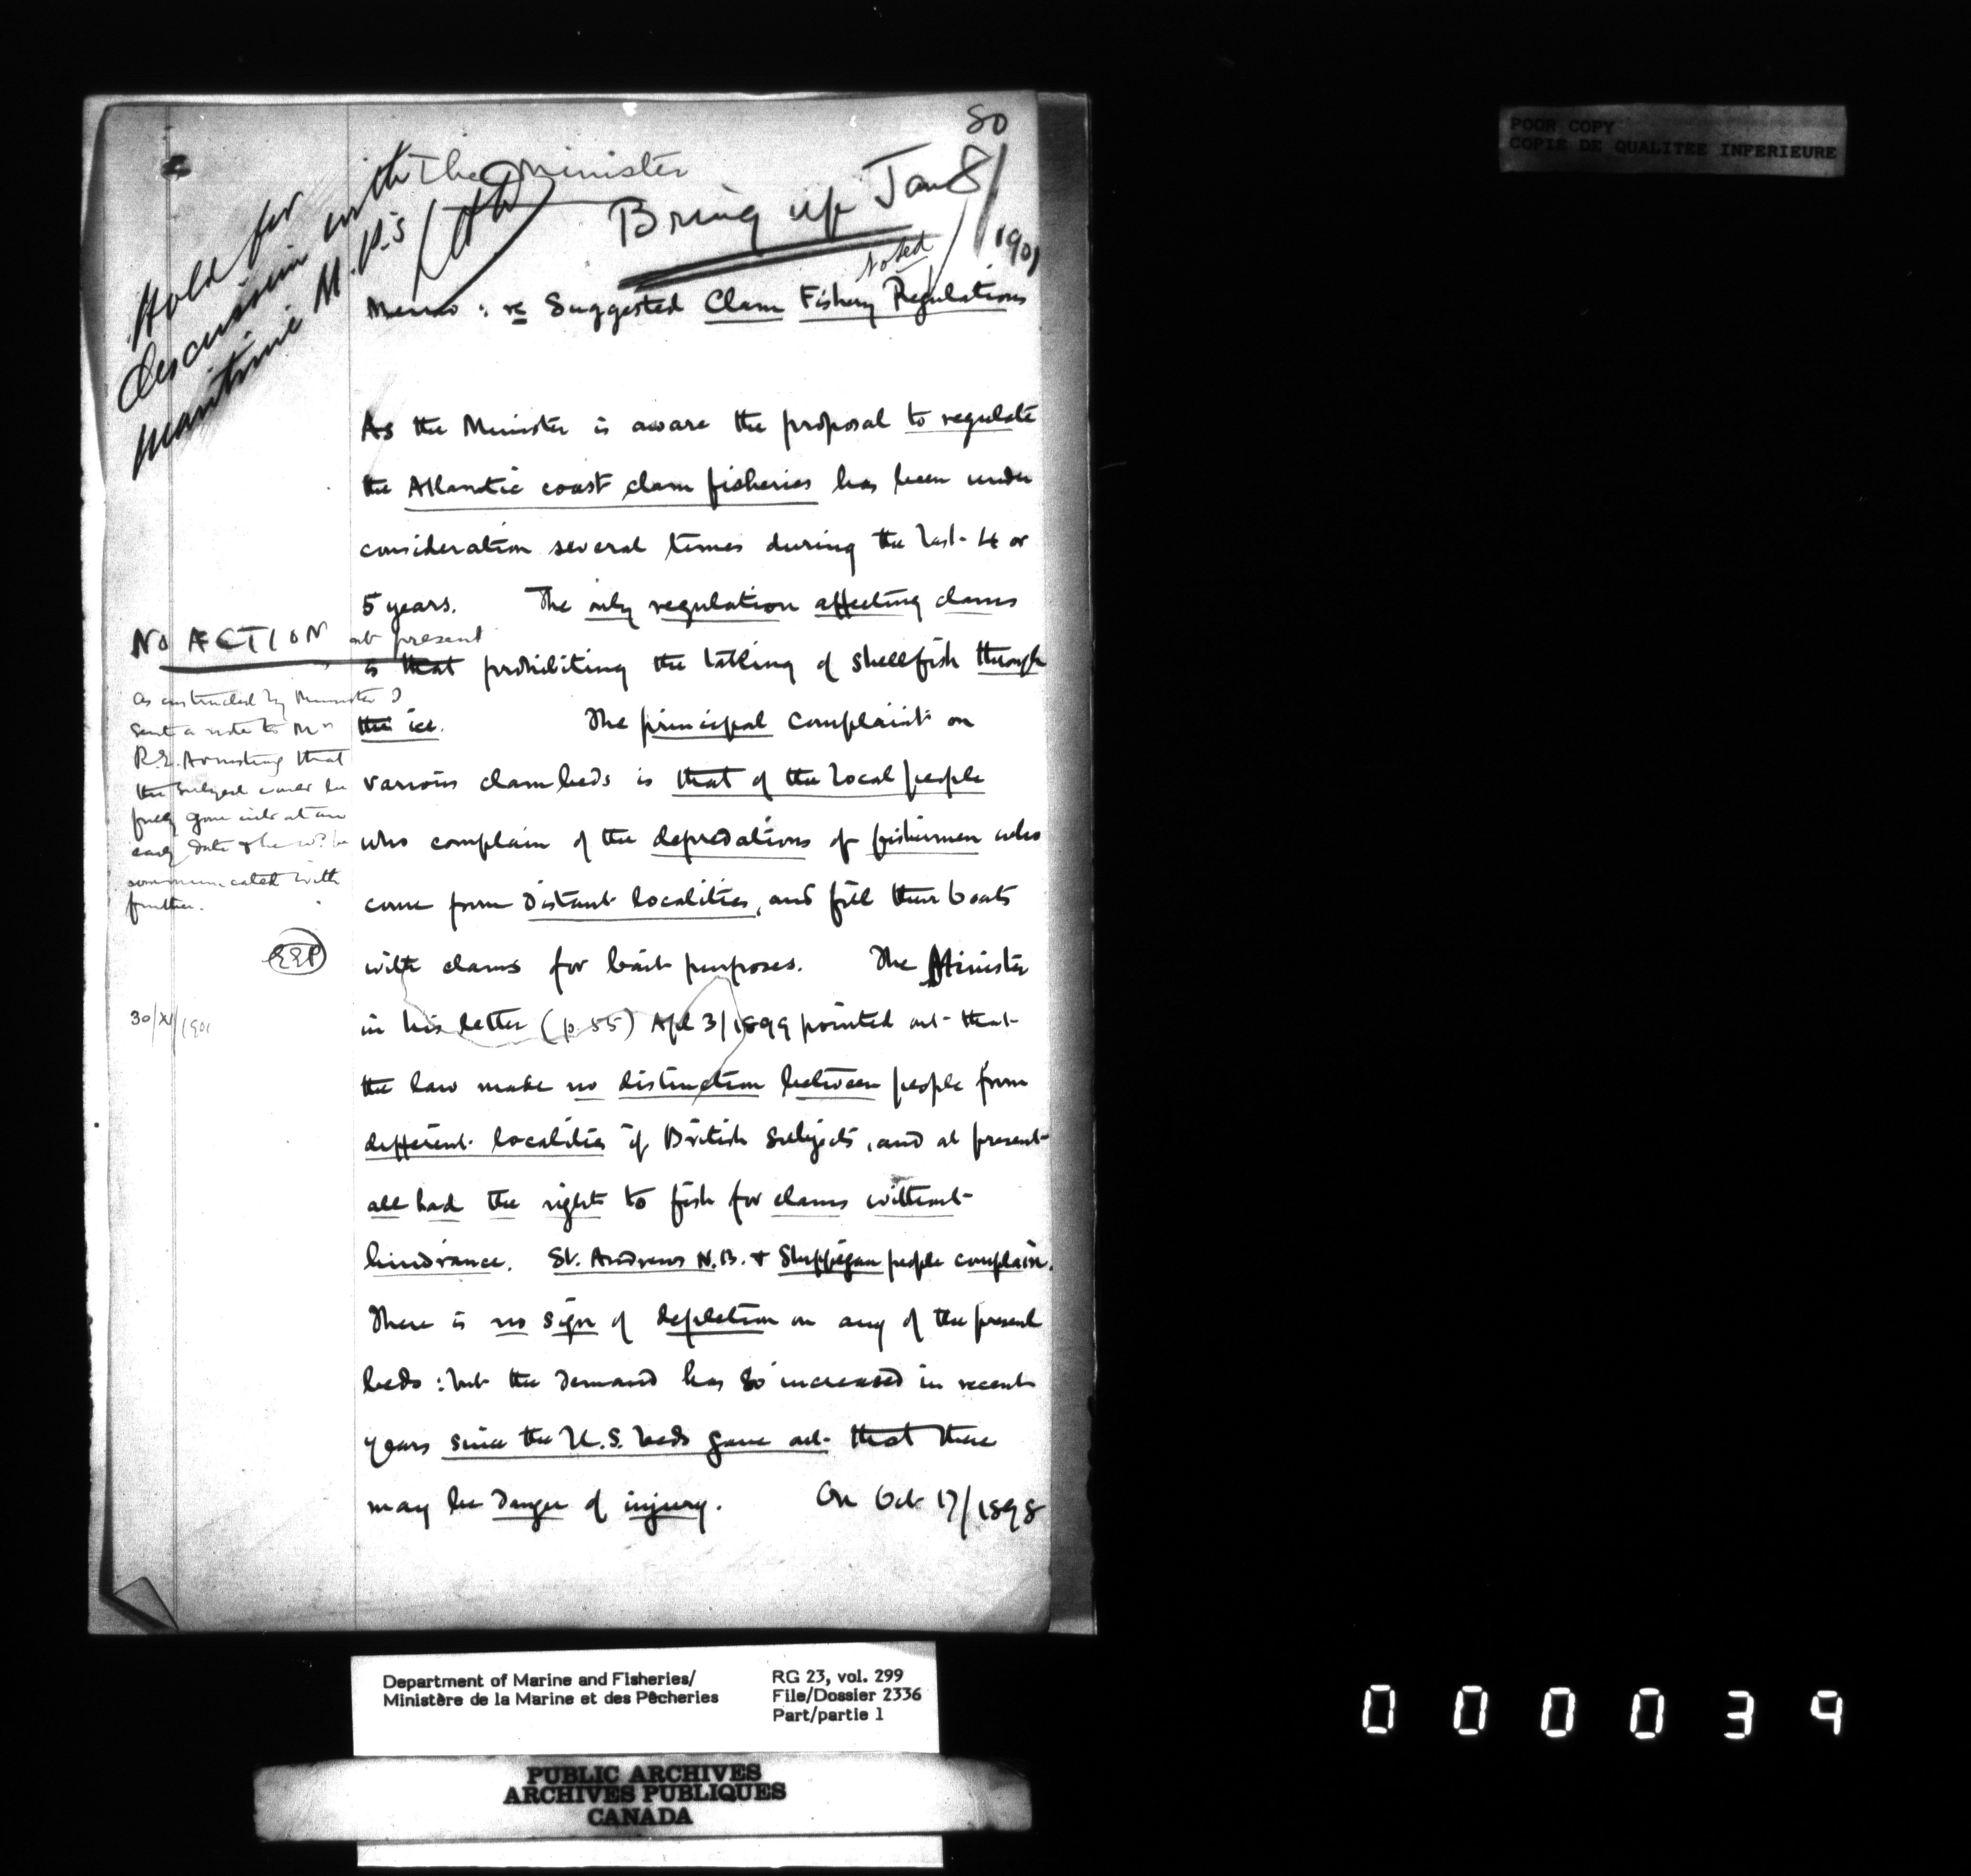 80
The Minister
Hold for
discussion with
maritime M.P.'s
Bring up Jan 8/
1901
Noted
Memo : re Suggested Clam Fishery Regulations
As the Minister is aware the proposal to regulate
the Atlantic coast clam fisheries has been under
consideration several times during the last 4 or
5 years. The only regulation affecting clams
at present
is that prohibiting the taking of shellfish through
the ice. The principal complaint on
various clam beds is that of the local people
who complain of the depredations of fishermen who
come from distant localities, and fill their boats
with clams for bait purposes. The Minister
in his letter (p. 55) Apl 3/1899 pointed out that
the law make no distinction between people from
different localities if British Subjects, and at present
all had the rights to fish for clams without
hindrance. St. Andrews N.B. & Shippigan people complain.
There is no sign of depletion on any of the present
beds : but the demand has so increased in recent
years since the U.S. beds gave out that there
may be danger of injury. On Oct 17/1898
NO ACTION
As instructed by Minister I
sent a note to Mr
R.E. Armstrong that
the subject would be
fully gone into at an
early date & he wd be
communicated with
further.
EEP
30/XI/1901
POOR COPY
COPIE DE QUALITEE INFERIEURE
Department of Marine and Fisheries/
Ministère de la Marine et des Pêcheries
RG 23, vol. 299
File/Dossier 2336
Part/partie 1
PUBLIC ARCHIVES
ARCHIVES PUBLIQUES
CANADA
000039